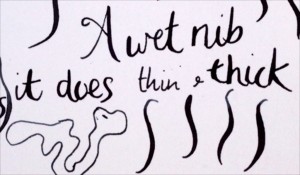 A wet nib
it does thin & thick